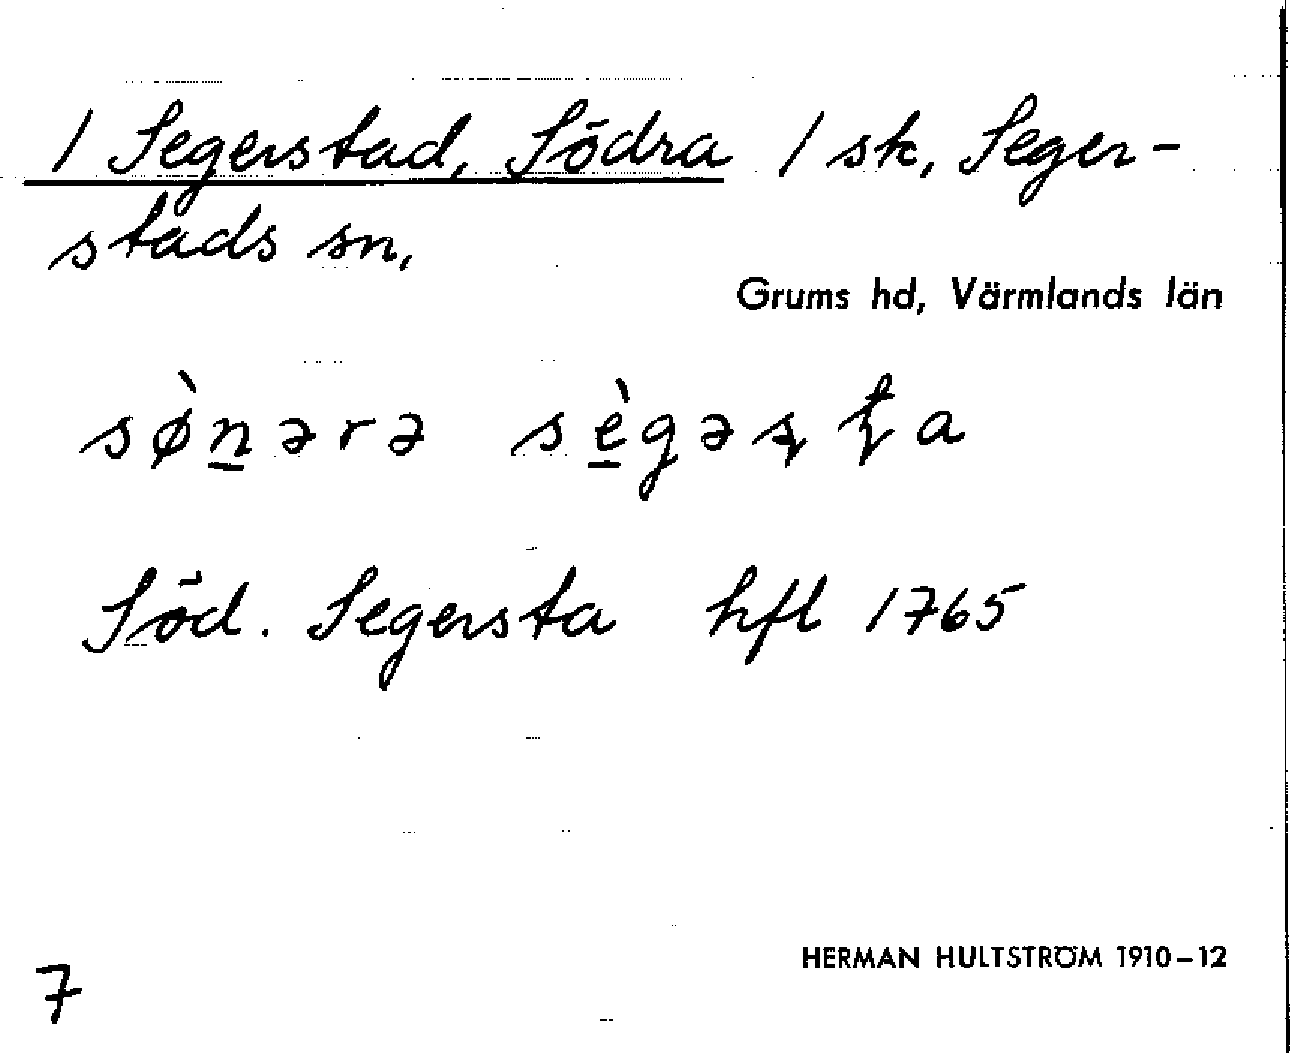 / Segerstad, Södra / sk, Seger-
stads sn,
Grums hd, Värmlands län
sø̀n̲ərə sè̲gəʂʈa
Söd. Segersta hfl 1765
HERMAN HULTSTRÖM 1910–12
7